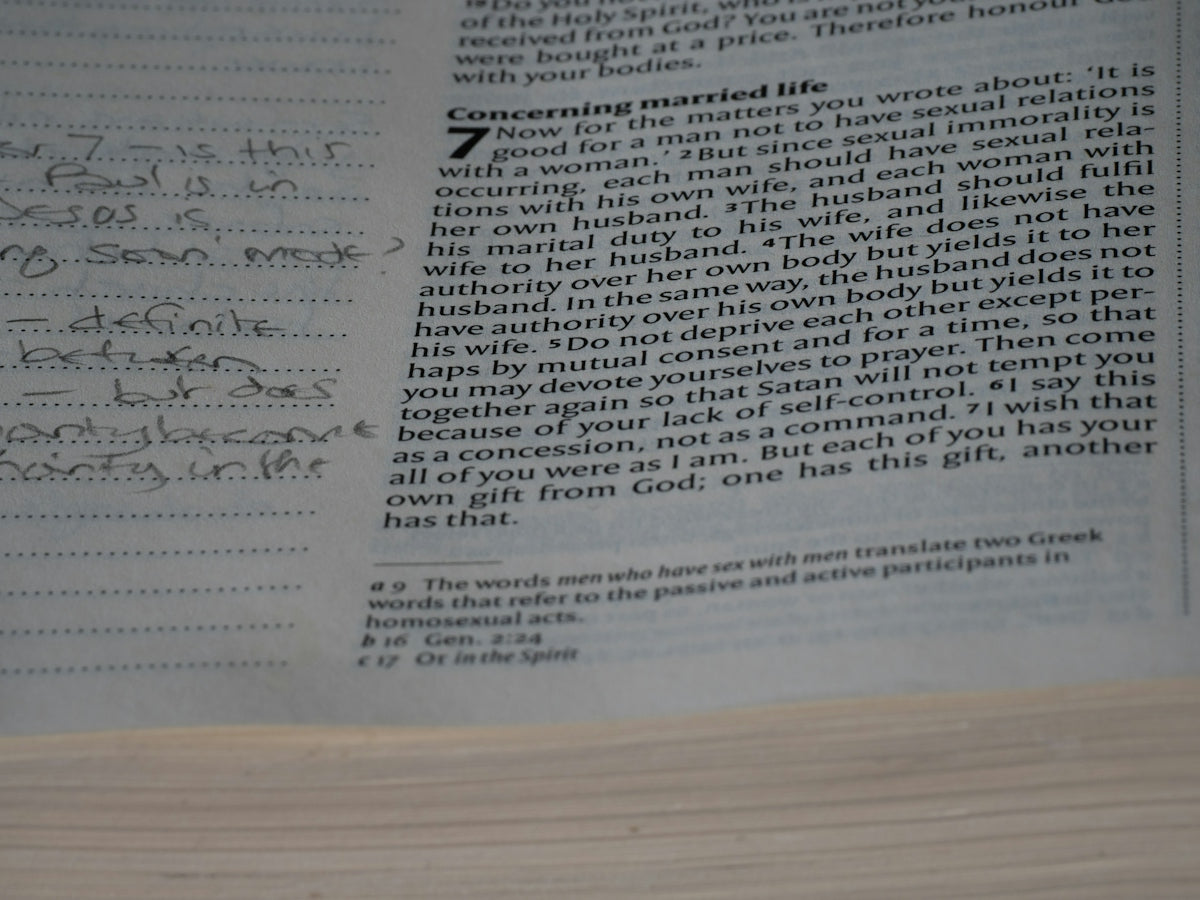 19 Do you
of the Holy Spirit, who
received from God? You are not
were bought at a price. Therefore honour God
with your bodies.
Concerning married life
7 Now for the matters you wrote about: ‘It is
good for a man not to have sexual relations
with a woman.’ 2 But since sexual immorality is
occurring, each man should have sexual rela-
tions with his own wife, and each woman with
her own husband. 3 The husband should fulfil
his marital duty to his wife, and likewise the
wife to her husband. 4 The wife does not have
authority over her own body but yields it to her
husband. In the same way, the husband does not
have authority over his own body but yields it to
his wife. 5 Do not deprive each other except per-
haps by mutual consent and for a time, so that
you may devote yourselves to prayer. Then come
together again so that Satan will not tempt you
because of your lack of self-control. 6 I say this
as a concession, not as a command. 7 I wish that
all of you were as I am. But each of you has your
own gift from God; one has this gift, another
has that.
a 9 The words men who have sex with men translate two Greek
words that refer to the passive and active participants in
homosexual acts.
b 16 Gen. 2:24
c 17 Or in the Spirit
7 – is this
Paul is in
Jesus is
soon' mode?
– definite
between
– but does
in the